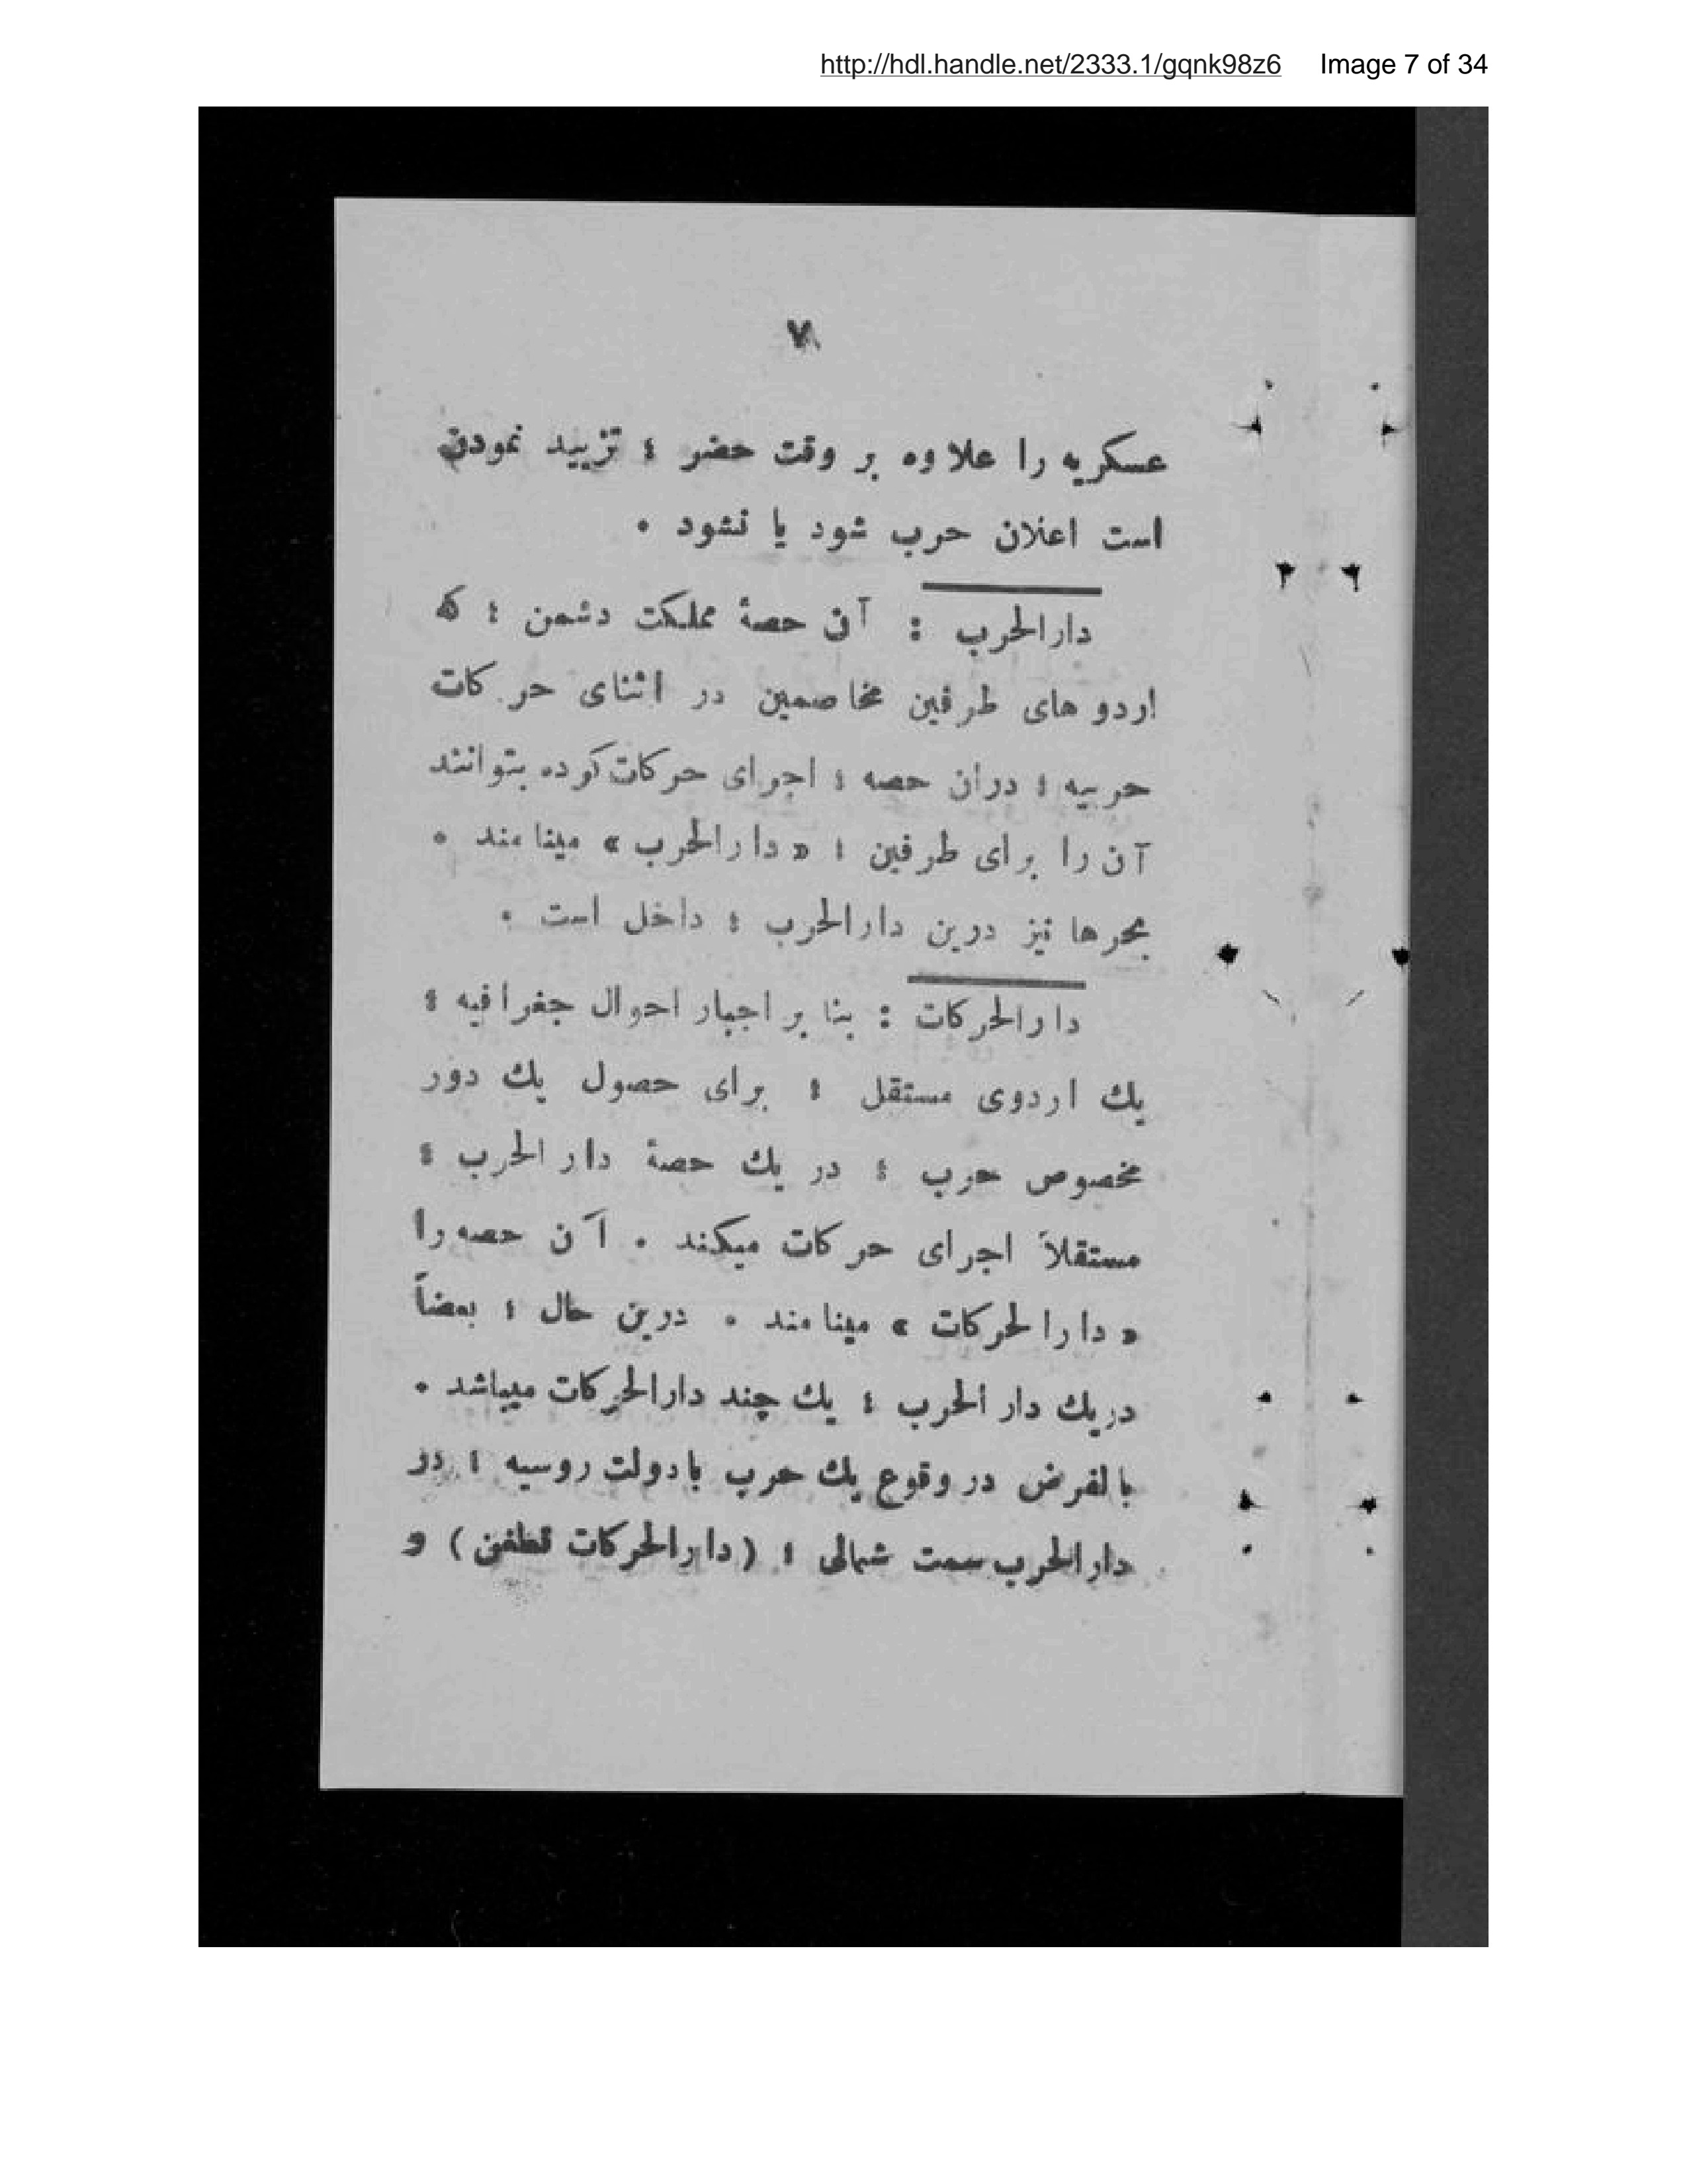 http://hdl.handle.net/2333.1/gqnk98z6 Image 7 of 34
٧
عسكريه را علاوه بر وقت حضر ؛ تزييد نمودن
است اعلان حرب شود يا نشود .
دارالحرب : آن حصهٔ مملكت دشمن ؛ كه
اردو های طرفين مخاصمين در اثنای حركات
حربيه ؛ دران حصه ؛ اجرای حركات كرده بتوانند
آن را برای طرفين ؛ « دارالحرب » مينامند .
بحرها نيز درين دارالحرب ؛ داخل است .
دارالحركات : بنا بر اجبار احوال جغرافيه ؛
يك اردوی مستقل ؛ برای حصول يك دور
مخصوص حرب ؛ در يك حصهٔ دار الحرب ؛
مستقلاً اجرای حركات ميكند . آن حصه را
« دارالحركات » مينامند . درين حال ؛ بعضاً
دريك دار الحرب ؛ يك چند دارالحركات ميباشد .
بالفرض در وقوع يك حرب بادولت روسيه ؛ در
دارالحرب سمت شمالی ؛ (دارالحركات قطغن) و